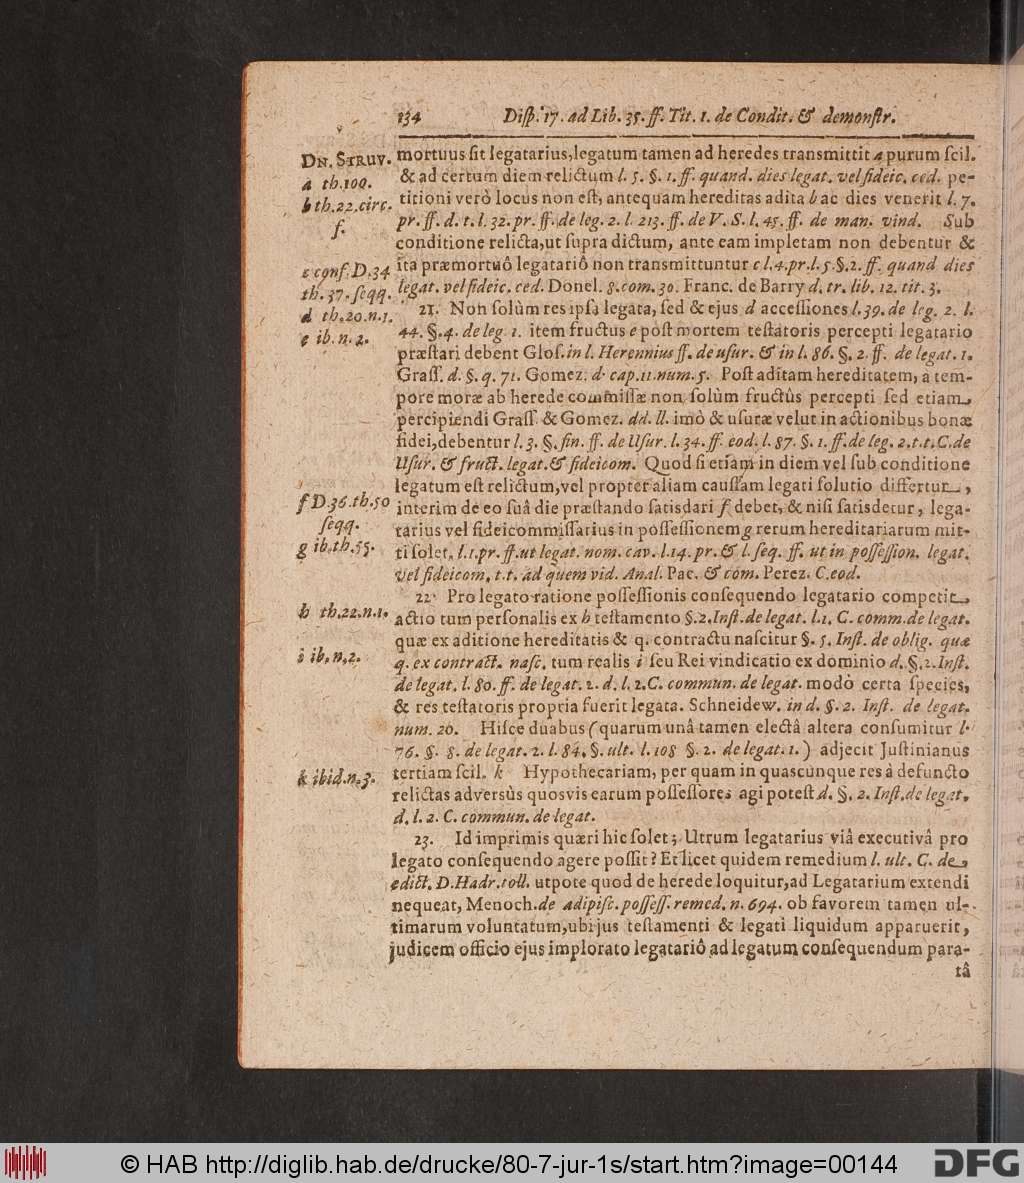 134 Diſp. 17. ad Lib. 35. ff. Tit. 1. de Condit. & demonſtr.
DN. STRUV.
a th. 100.
b th. 22. circ.
f.
c conf. D. 34
th. 37. ſeqq.
d th. 20. n. 1.
e ib. n. 2.
f D. 36. th. 50
ſeqq.
g ib. th. 55.
h th. 22. n. 1.
i ib. n. 2.
k ibid. n. 3.
mortuus ſit legatarius, legatum tamen ad heredes transmittit a purum ſcil.
& ad certum diem relictum l. 5. §. 1. ff. quand. dies legat. vel fideic. ced. pe-
titioni verò locus non eſt, antequam hereditas adita b ac dies venerit l. 7.
pr. ff. d. t. l. 32. pr. ff. de leg. 2. l. 213. ff. de V. S. l. 45. ff. de man. vind. Sub
conditione relicta, ut ſupra dictum, ante eam impletam non debentur &
ita præmortuô legatariô non transmittuntur c l. 4. pr. l. 5. §. 2. ff. quand dies
legat. vel fideic. ced. Donel. 8. com. 30. Franc. de Barry d. tr. lib. 12. tit. 3.
21. Non ſolùm res ipſa legata, ſed & ejus d acceſſiones l. 39. de leg. 2. l.
44. §. 4. de leg. 1. item fructus e poſt mortem teſtatoris percepti legatario
præſtari debent Gloſ. in l. Herennius ff. de uſur. & in l. 86. §. 2. ff. de legat. 1.
Graſſ. d. §. q. 71. Gomez. d. cap. 11. num. 5. Poſt aditam hereditatem, à tem-
pore moræ ab herede commiſſæ non ſolùm fructûs percepti ſed etiam
percipiendi Graſſ. & Gomez. dd. ll. imò & uſuræ velut in actionibus bonæ
fidei, debentur l. 3. §. fin. ff. de Uſur. l. 34. ff. eod. l. 87. §. 1. ff. de leg. 2. t. t. C. de
Uſur. & fruct. legat. & fideicom. Quod ſi etiam in diem vel ſub conditione
legatum eſt relictum, vel propter aliam cauſſam legati ſolutio differtur,
interim de eo ſuâ die præſtando ſatisdari f debet, & niſi ſatisdetur, lega-
tarius vel fideicommiſſarius in poſſeſſionem g rerum hereditariarum mit-
ti ſolet, l. 1. pr. ff. ut legat. nom. cav. l. 14. pr. & l. ſeq. ff. ut in poſſeſſion. legat.
vel fideicom. t. t. ad quem vid. Anal. Pac. & com. Perez. C. eod.
22. Pro legato ratione poſſeſſionis conſequendo legatario competit
actio tum perſonalis ex h teſtamento §. 2. Inſt. de legat. l. 1. C. comm. de legat.
quæ ex aditione hereditatis & q. contractu naſcitur §. 5. Inſt. de oblig. quæ
q. ex contract. naſc. tum realis i ſeu Rei vindicatio ex dominio d. §. 2. Inſt.
de legat. l. 80. ff. de legat. 2. d. l. 2. C. commun. de legat. modò certa ſpecies,
& res teſtatoris propria fuerit legata. Schneidew. in d. §. 2. Inſt. de legat.
num. 20. Hiſce duabus (quarum unâ tamen electâ altera conſumitur l.
76. §. 8. de legat. 2. l. 84. §. ult. l. 108 §. 2. de legat. 1.) adjecit Juſtinianus
tertiam ſcil. k Hypothecariam, per quam in quascunque res à defuncto
relictas adversùs quosvis earum poſſeſſores agi poteſt d. §. 2. Inſt. de legat.
d. l. 2. C. commun. de legat.
23. Id imprimis quæri hic ſolet; Utrum legatarius viâ executivâ pro
legato conſequendo agere poſſit? Et licet quidem remedium l. ult. C. de
edict. D. Hadr. toll. utpote quod de herede loquitur, ad Legatarium extendi
nequeat, Menoch. de adipiſc. poſſeſſ. remed. n. 694. ob favorem tamen ul-
timarum voluntatum, ubi jus teſtamenti & legati liquidum apparuerit,
judicem officio ejus implorato legatariô ad legatum conſequendum para-
tâ
© HAB http://diglib.hab.de/drucke/80-7-jur-1s/start.htm?image=00144
DFG